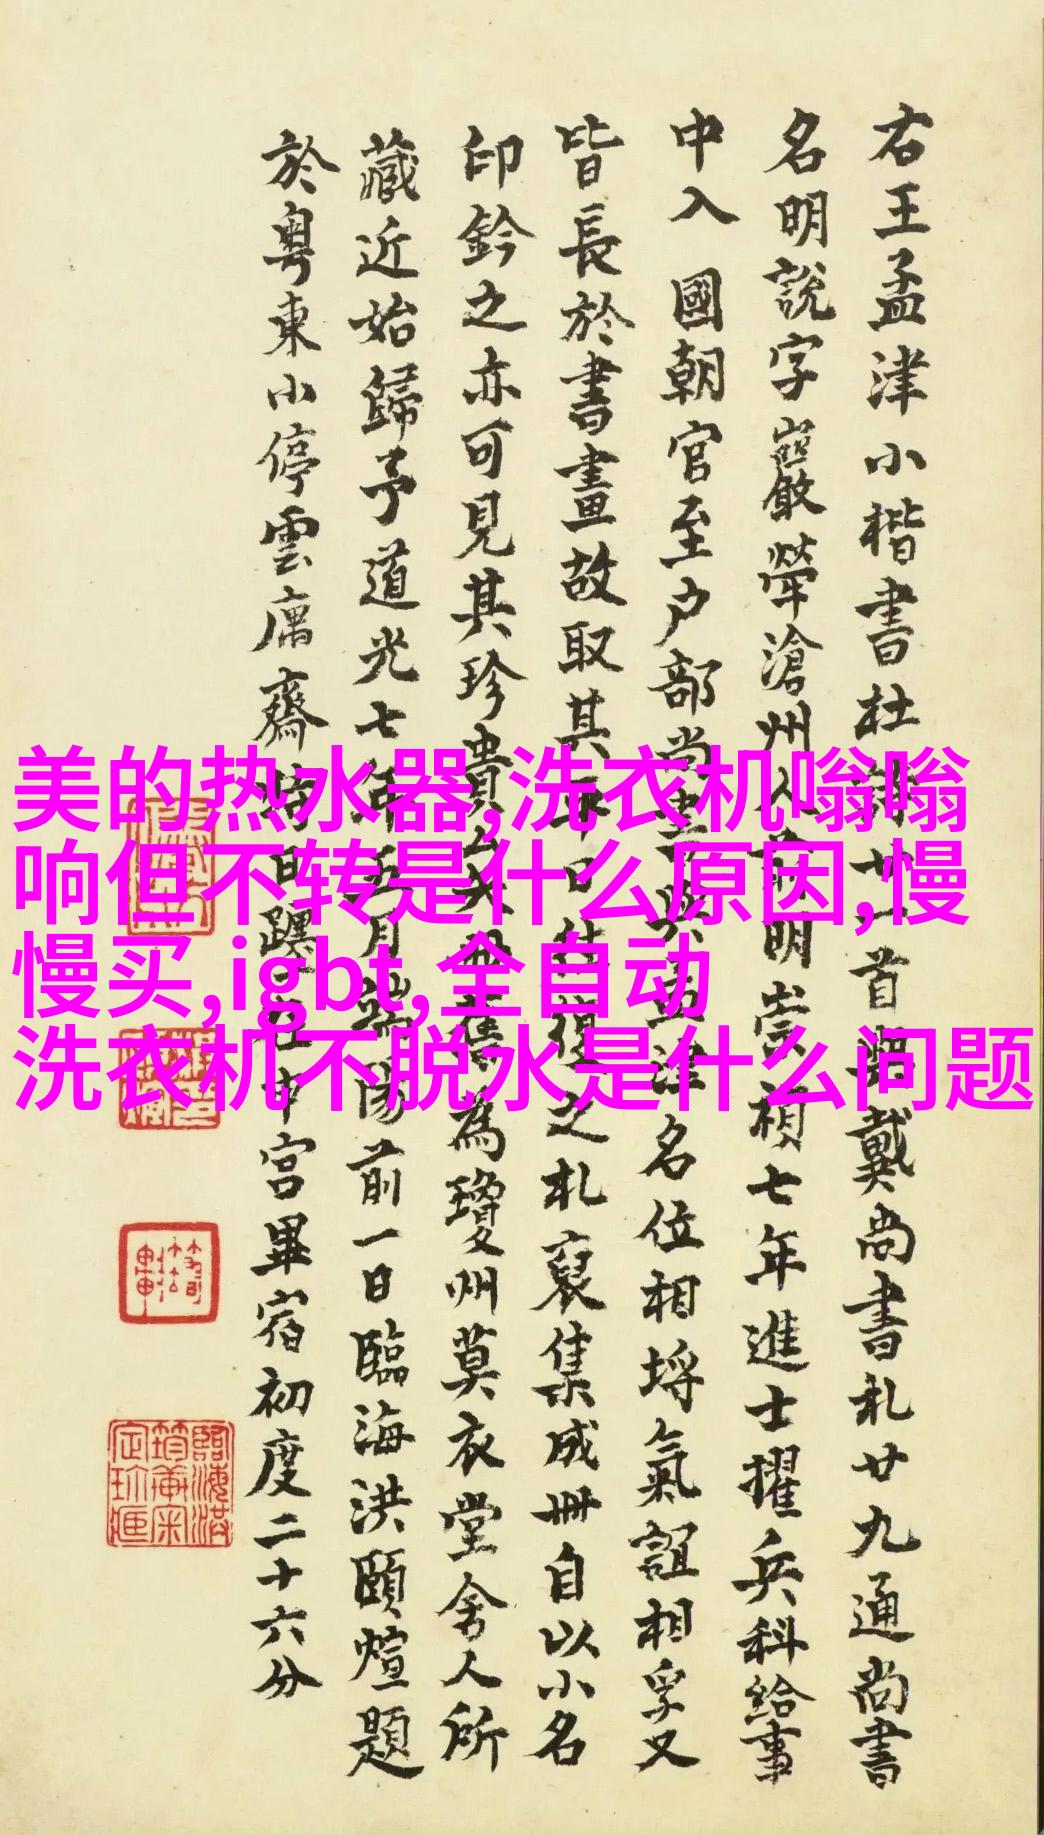 右王孟津小楷書杜詩廿一首與戴尚書札廿九通尚書
名明說字巖犖滄州人前明崇禎七年進士擢兵科給事
中入國朝官至戶部尚書與孟津名位相埒氣誼相孚又
皆長於書畫故取其平日往復之札裒集成冊自以小名
印鈐之亦可見其珍貴矣冊舊為瓊州莫衣堂舍人所
藏近始歸予道光七年五月端陽前一日臨海洪頤煊題
於粵東小停雲庽齋時日躔在中宮畢宿初度二十六分
美的热水器,洗衣机嗡嗡
响但不转是什么原因,慢
慢买,igbt,全自动
洗衣机不脱水是什么问题